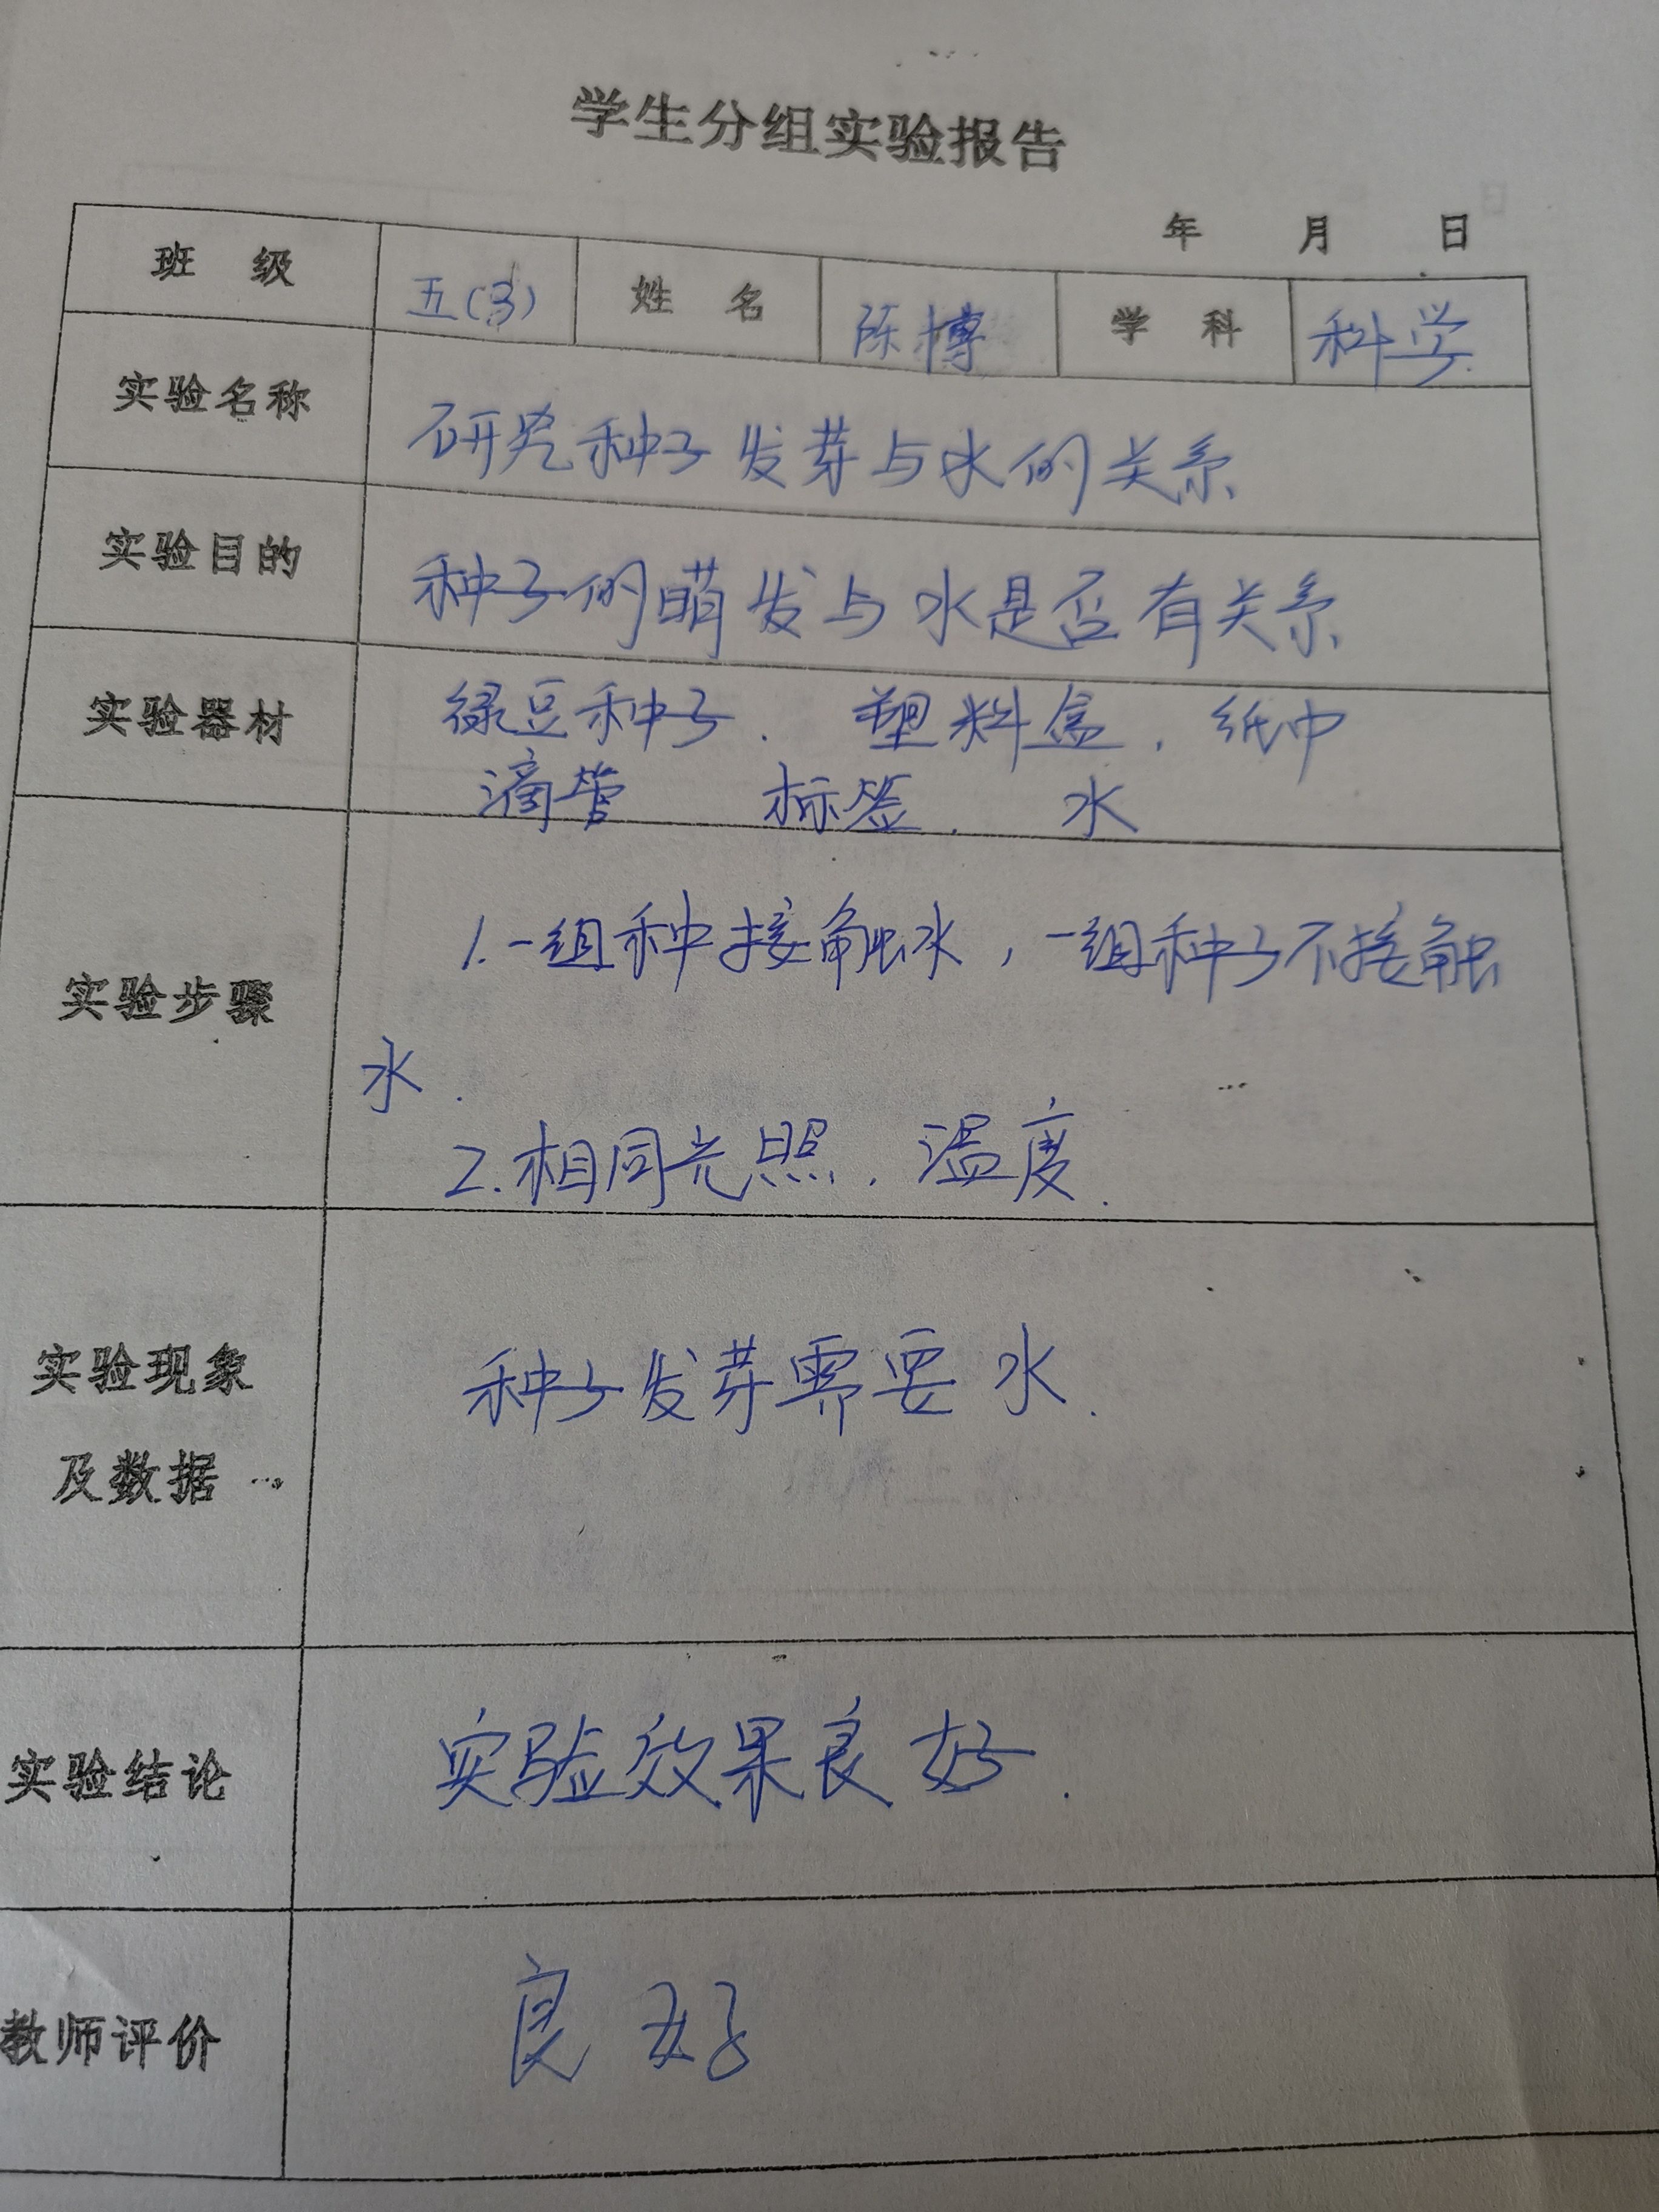 学生分组实验报告
年 月 日
班 级 五(3) 姓 名 陈博 学 科 科学
实验名称 研究种子发芽与水的关系
实验目的 种子的萌发与水是否有关系
实验器材 绿豆种子. 塑料盒. 纸巾
滴管 标签. 水
实验步骤 1.一组种接触水,一组种子不接触
水.
2.相同光照. 温度.
实验现象
及数据 种子发芽需要水.
实验结论 实验效果良好.
教师评价 良好